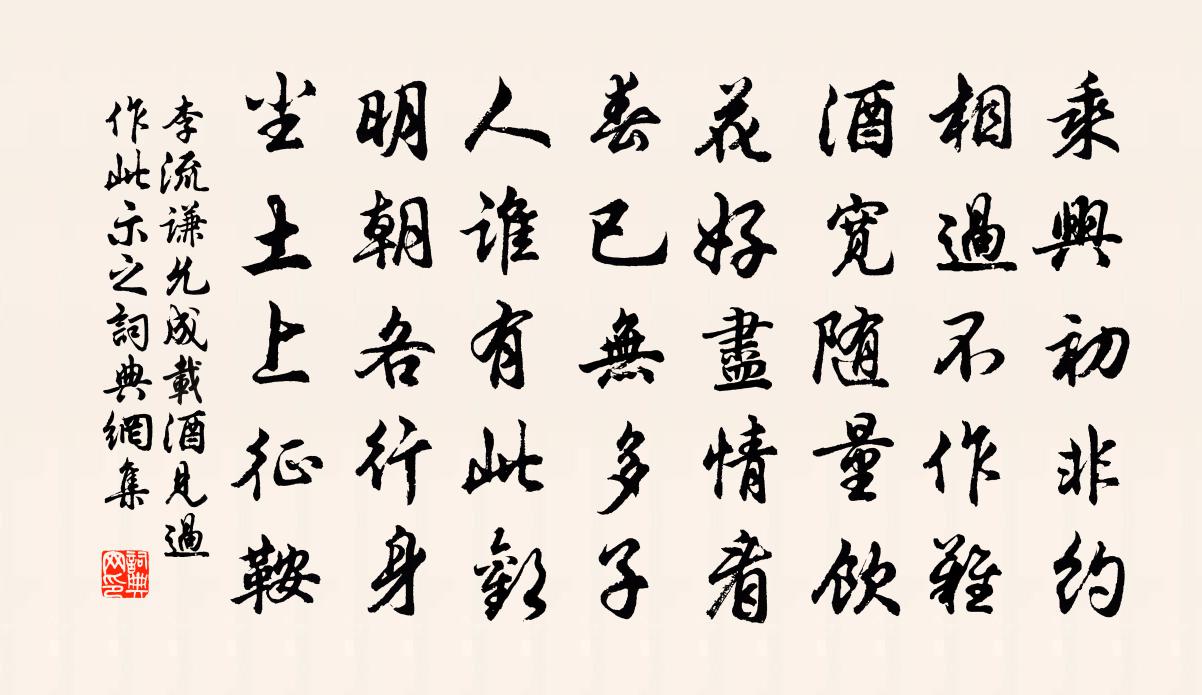 乘興初非約
相過不作難
酒宽随量飲
花好盡情看
春已無多子
人誰有此歡
明朝各行身
尘土上征鞍
李流謙允成載酒見過
作此示之詞典網集
詞典
网印